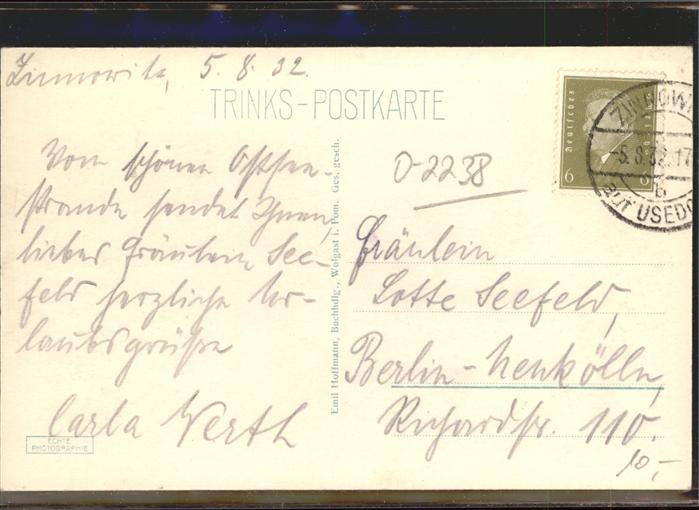 Zinnowitz, 5.8.32.
TRINKS-POSTKARTE
Vom schönen Ostsee-
strande sendet Ihnen,
liebes Fräulein See-
feld herzliche Ur-
laubsgrüße
Carla Werth
ECHTE
PHOTOGRAPHIE
Emil Hoffmann, Buchhdlg., Wolgast i. Pom. Ges. gesch.
O-2238
Deutsches
6 6
ZINNOWI
-5.8.32.17
b
AUF USEDO
Fräulein
Lotte Seefeld,
Berlin-Neukölln,
Richardstr. 110.
10,-